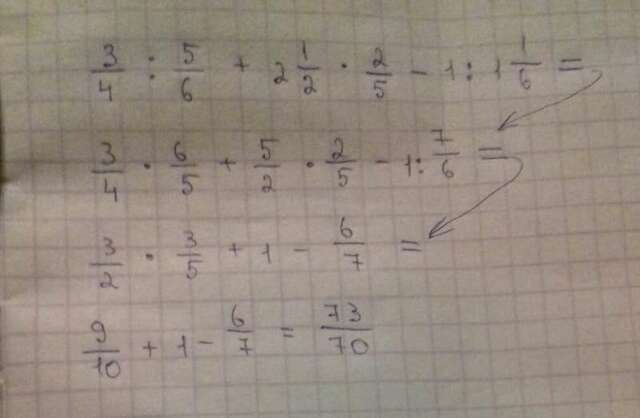 3/4 : 5/6 + 2 1/2 · 2/5 - 1 : 1 1/6 =
3/4 · 6/5 + 5/2 · 2/5 - 1 : 7/6 =
3/2 · 3/5 + 1 - 6/7 =
9/10 + 1 - 6/7 = 73/70